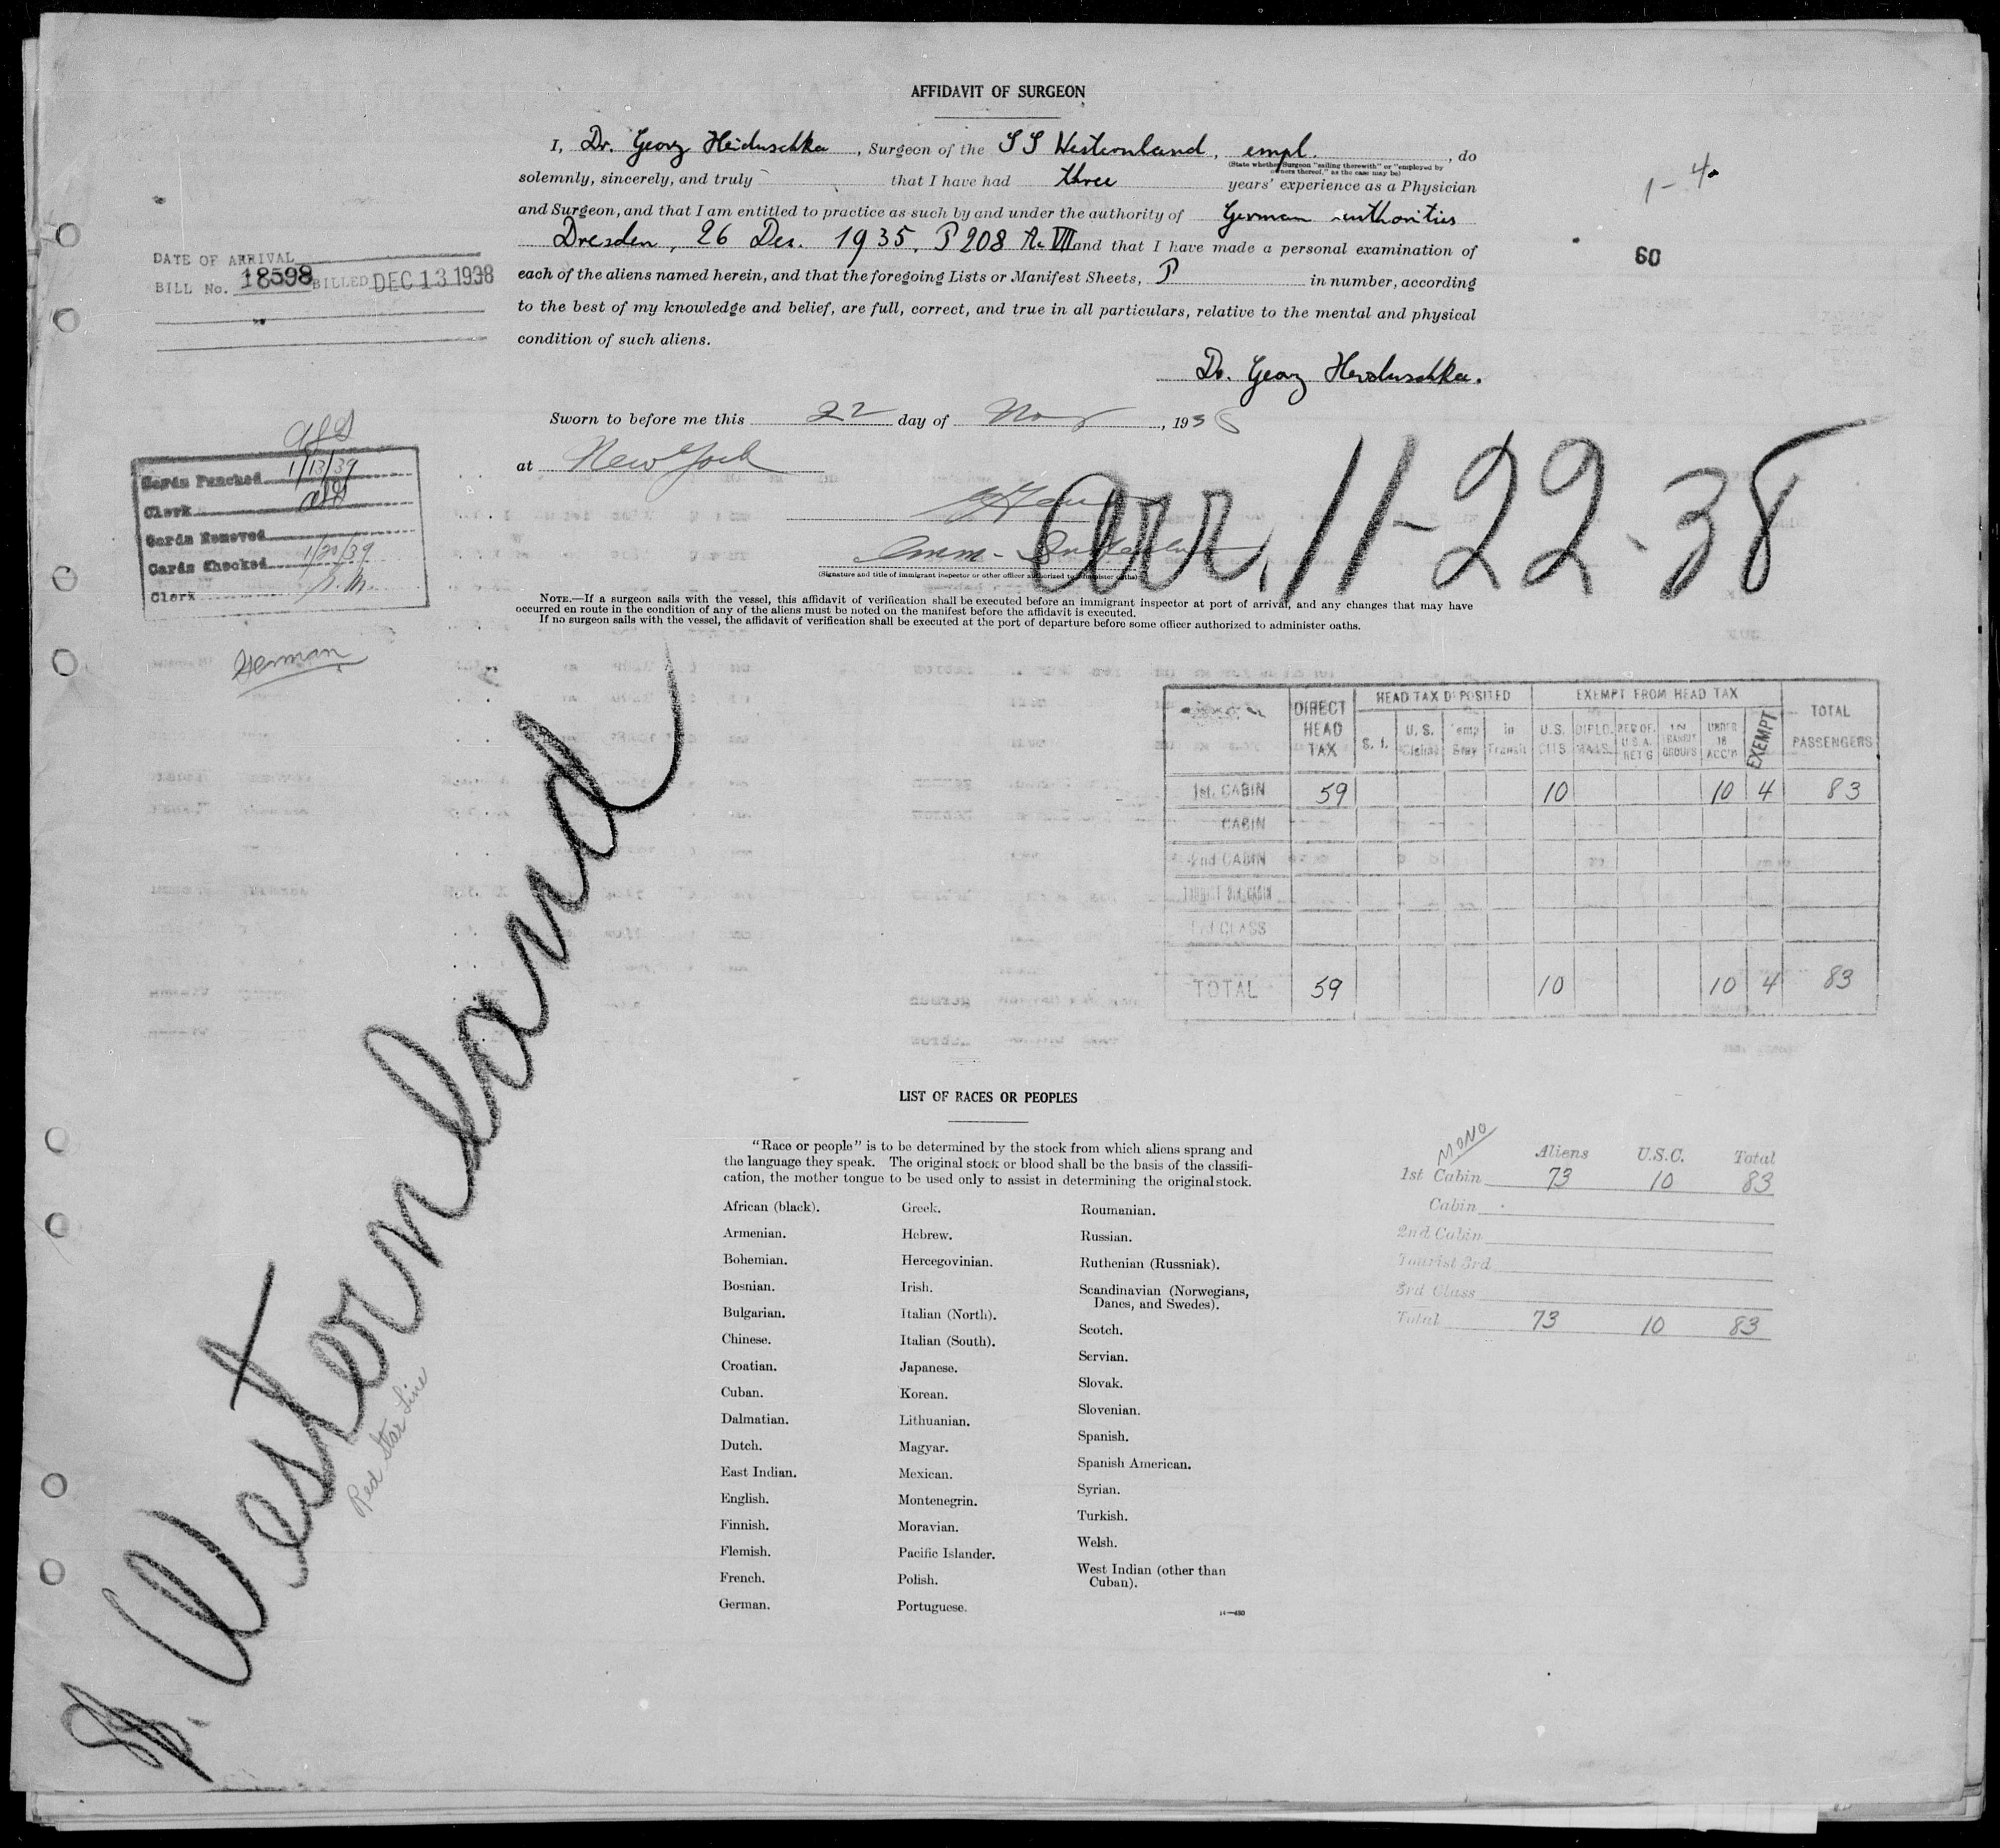 AFFIDAVIT OF SURGEON
I, Dr. Georg Heiduschka, Surgeon of the SS Westernland, empl., do
(State whether Surgeon "sailing therewith" or "employed by owners thereof," as the case may be)
solemnly, sincerely, and truly that I have had three years' experience as a Physician
and Surgeon, and that I am entitled to practice as such by and under the authority of German authorities
Dresden, 26 Dez. 1935, P 208 A. VIII and that I have made a personal examination of
each of the aliens named herein, and that the foregoing Lists or Manifest Sheets, in number, according
to the best of my knowledge and belief, are full, correct, and true in all particulars, relative to the mental and physical
condition of such aliens.
Dr. Georg Heiduschka.
Sworn to before me this 22 day of Nov, 1938
at New York
(Signature and title of immigrant inspector or other officer authorized to administer oaths)
NOTE.—If a surgeon sails with the vessel, this affidavit of verification shall be executed before an immigrant inspector at port of arrival, and any changes that may have
occurred en route in the condition of any of the aliens must be noted on the manifest before the affidavit is executed.
If no surgeon sails with the vessel, the affidavit of verification shall be executed at the port of departure before some officer authorized to administer oaths.
1-4
60
DATE OF ARRIVAL
BILL No. 18598 BILLED DEC 13 1938
Cards Punched 1/13/39
Clerk
Cards Removed
Cards Checked 1/20/39
Clerk
German
Arr. 11-22-38
S. Westernland
Red Star Line
DIRECT HEAD TAX
HEAD TAX DEPOSITED
EXEMPT FROM HEAD TAX
TOTAL PASSENGERS
S. I. U. S. Temp Stay In Transit U.S. CITS DIPLOMATS UNDER 16 ACC'D EXEMPT
1st. CABIN 59 10 10 4 83
CABIN
2nd CABIN
TOURIST 3rd CABIN
3rd CLASS
TOTAL 59 10 10 4 83
LIST OF RACES OR PEOPLES
"Race or people" is to be determined by the stock from which aliens sprang and
the language they speak. The original stock or blood shall be the basis of the classifi-
cation, the mother tongue to be used only to assist in determining the original stock.
African (black).
Armenian.
Bohemian.
Bosnian.
Bulgarian.
Chinese.
Croatian.
Cuban.
Dalmatian.
Dutch.
East Indian.
English.
Finnish.
Flemish.
French.
German.
Greek.
Hebrew.
Hercegovinian.
Irish.
Italian (North).
Italian (South).
Japanese.
Korean.
Lithuanian.
Magyar.
Mexican.
Montenegrin.
Moravian.
Pacific Islander.
Polish.
Portuguese.
Roumanian.
Russian.
Ruthenian (Russniak).
Scandinavian (Norwegians,
Danes, and Swedes).
Scotch.
Servian.
Slovak.
Slovenian.
Spanish.
Spanish American.
Syrian.
Turkish.
Welsh.
West Indian (other than
Cuban).
14—480
MONO
Aliens U.S.C. Total
1st Cabin 73 10 83
Cabin
2nd Cabin
Tourist 3rd
3rd Class
Total 73 10 83